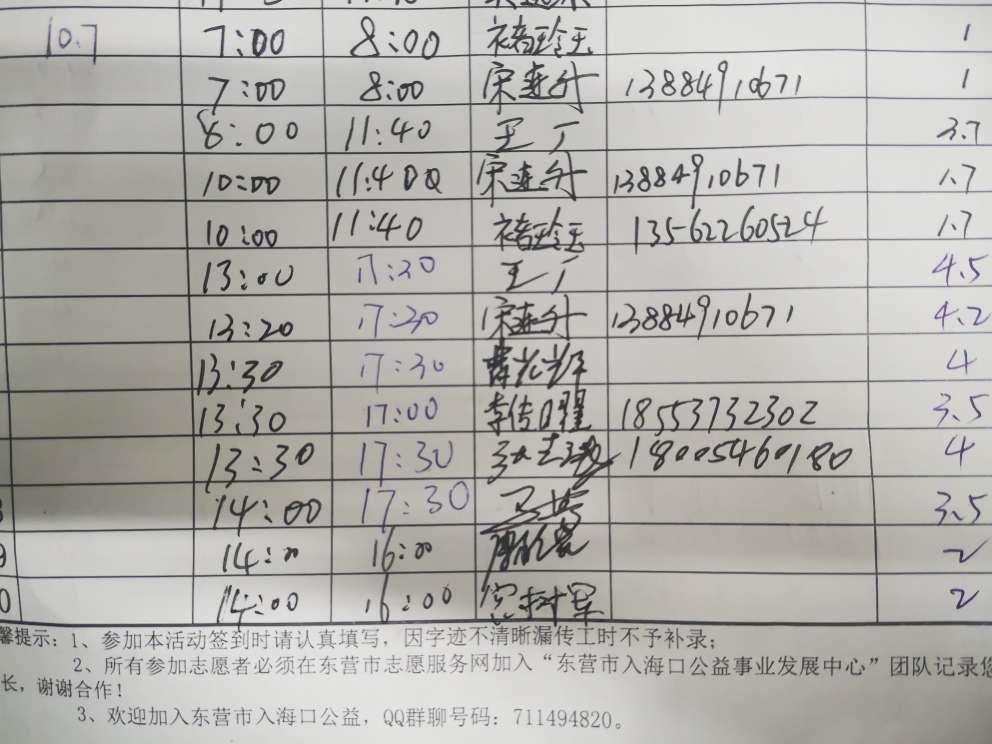 10.7 7:00 8:00 褚玲玉 1
7:00 8:00 宋连升 13884910671 1
8:00 11:40 王丁 3.7
10:00 11:40 宋连升 13884910671 1.7
10:00 11:40 褚玲玉 13562260524 1.7
13:00 17:30 王丁 4.5
13:20 17:30 宋连升 13884910671 4.2
13:30 17:30 4
13:30 17:00 李传日耀 18553732302 3.5
13:30 17:30 18005460180 4
14:00 17:30 3.5
14:00 16:00 2
14:00 16:00 2
馨提示：1、参加本活动签到时请认真填写，因字迹不清晰漏传工时不予补录；
2、所有参加志愿者必须在东营市志愿服务网加入“东营市入海口公益事业发展中心”团队记录
长，谢谢合作！
3、欢迎加入东营市入海口公益，QQ群聊号码：711494820。